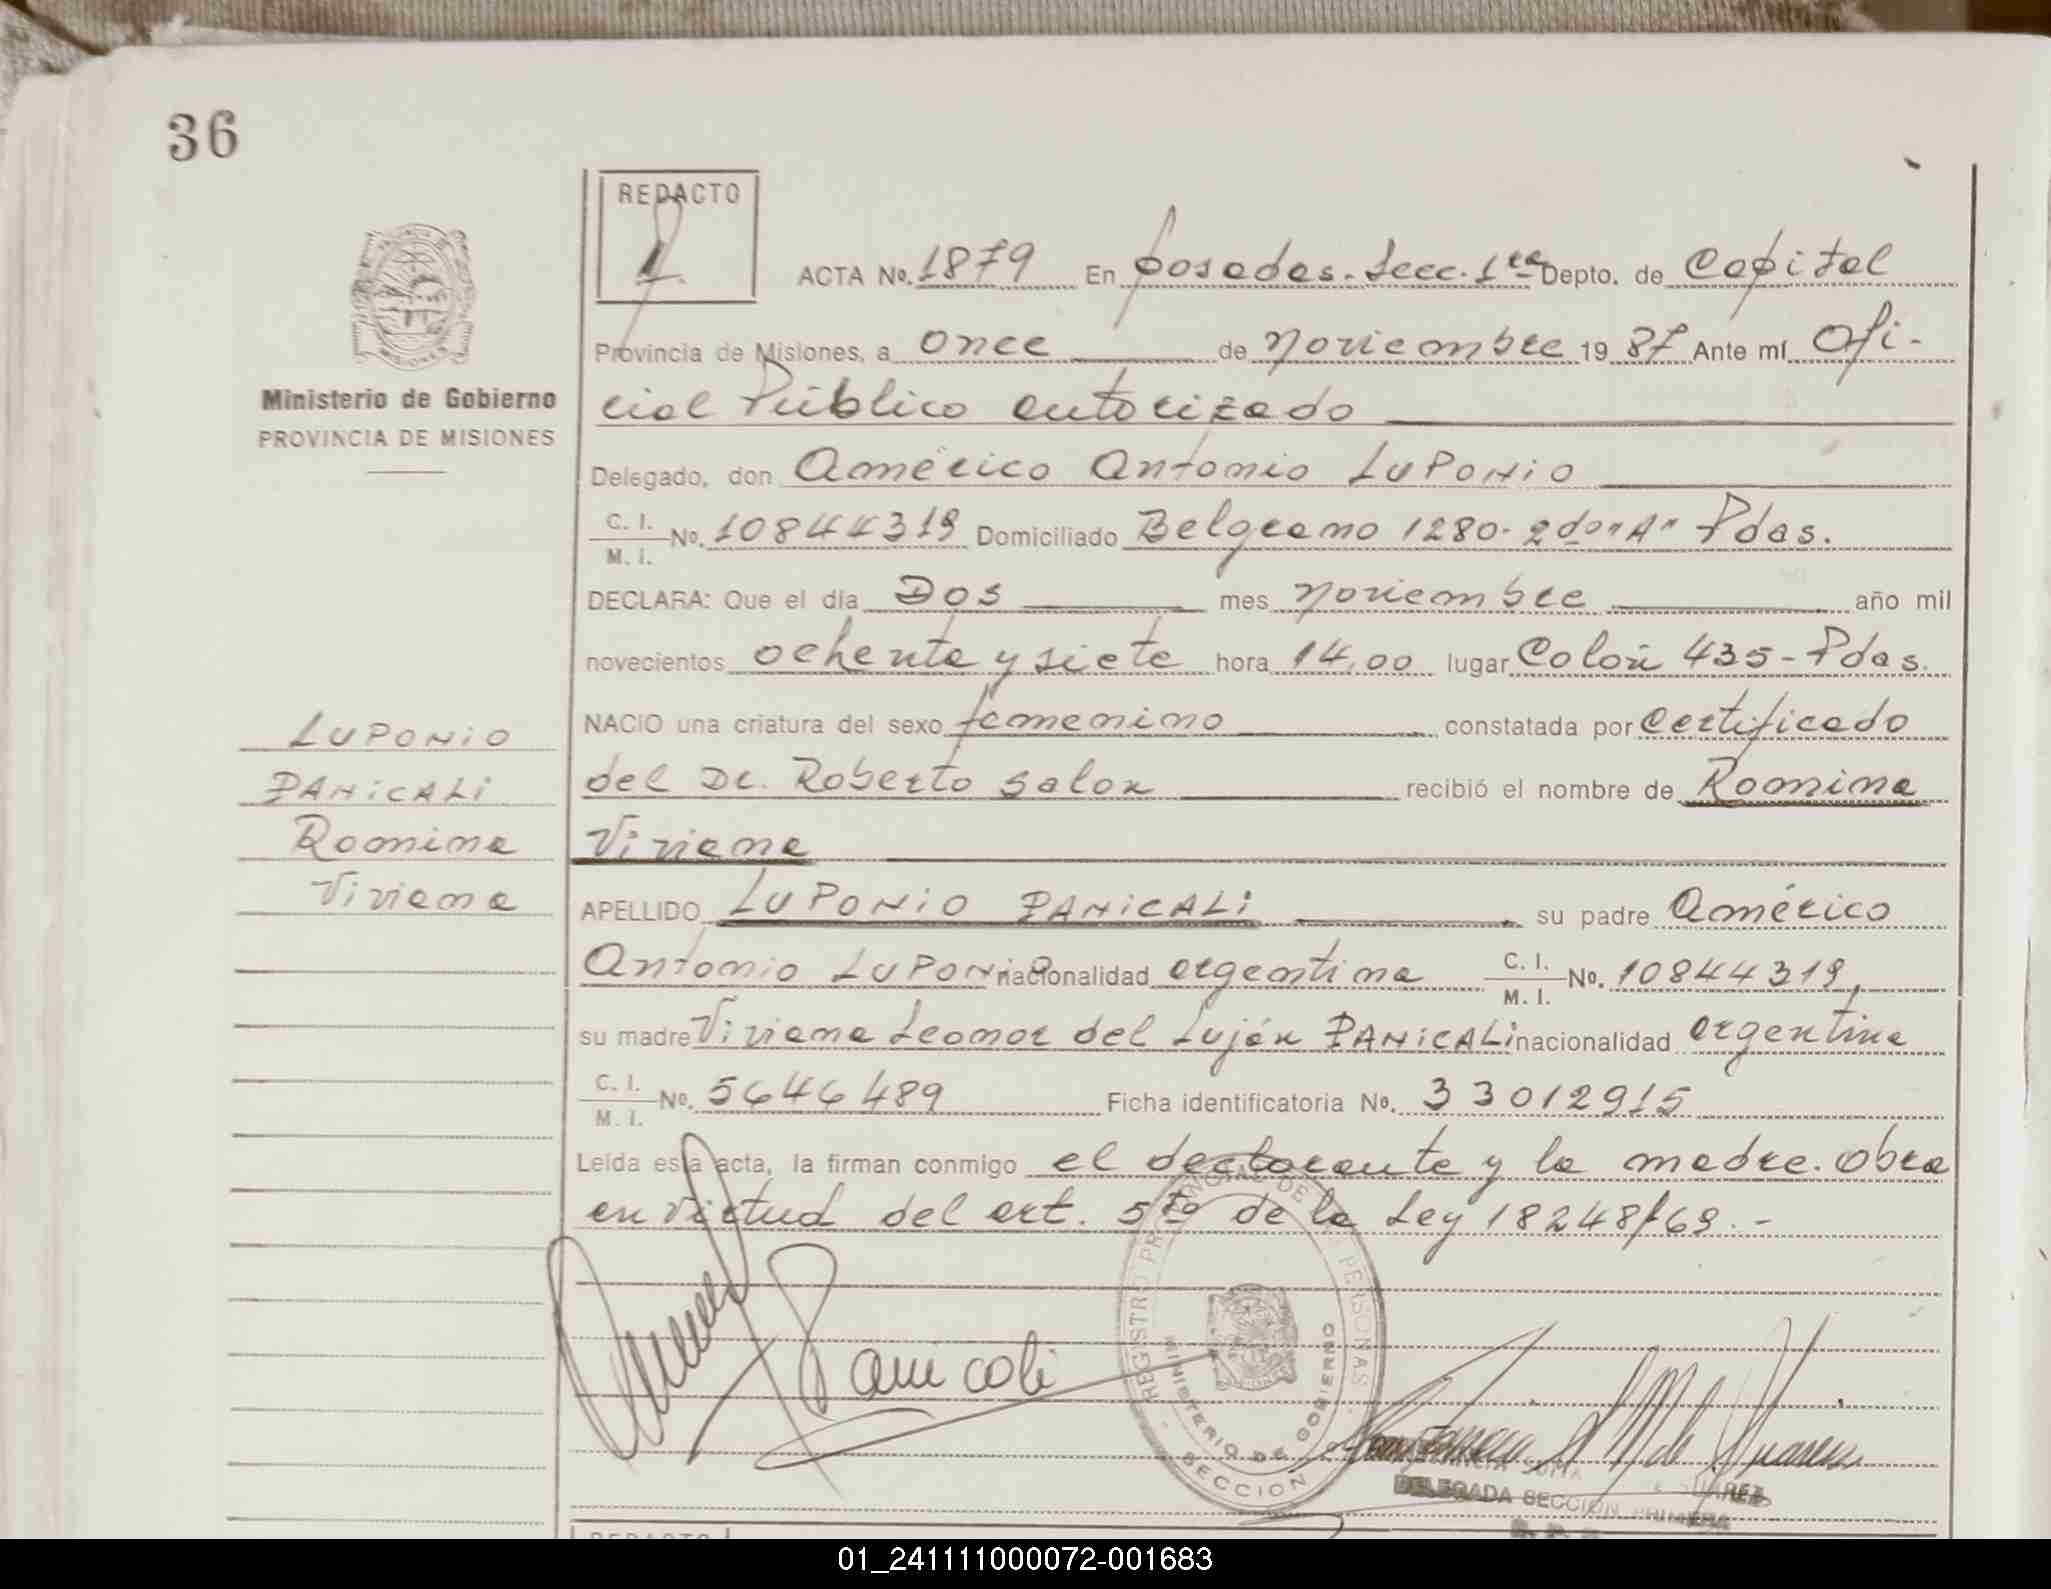 36
REDACTO
ACTA No. 1879 En Posadas. Secc. 1ra Depto. de Capital
Provincia de Misiones, a once de noviembre 1987 Ante mí Ofi-
cial Público autorizado
Ministerio de Gobierno
PROVINCIA DE MISIONES
Delegado, don Américo Antonio LUPONIO
C. I. / M. I. No. 10844319 Domiciliado Belgrano 1280-2do "A" Pdas.
DECLARA: Que el día Dos mes noviembre año mil
novecientos ochenta y siete hora 14,00 lugar Colón 435-Pdas.
NACIO una criatura del sexo femenino constatada por certificado
del Dr. Roberto Galox recibió el nombre de Romina
Viviana
LUPONIO
PANICALI
Romina
Viviana
APELLIDO LUPONIO PANICALI su padre Américo
Antonio LUPONIO nacionalidad argentina C. I. / M. I. No. 10844319,
su madre Viviana Leonor del Luján PANICALI nacionalidad argentina
C. I. / M. I. No. 5646489 Ficha identificatoria No. 33012915
Leída esta acta, la firman conmigo el declarante y la madre. Obra
en virtud del art. 5to de la Ley 18248/69.-
Panicali
REGISTRO PROVINCIAL DE PERSONAS
MINISTERIO DE GOBIERNO
SECCION
SUAREZ
DELEGADA SECCION PRIMERA
REDACTO
01_241111000072-001683